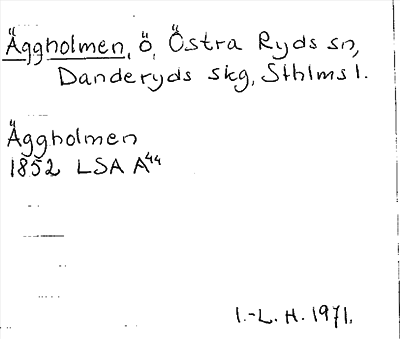 Äggholmen, ö, Östra Ryds sn,
Danderyds skg, Sthlms l.
Äggholmen
1852 LSA A44
I.-L. H. 1971.